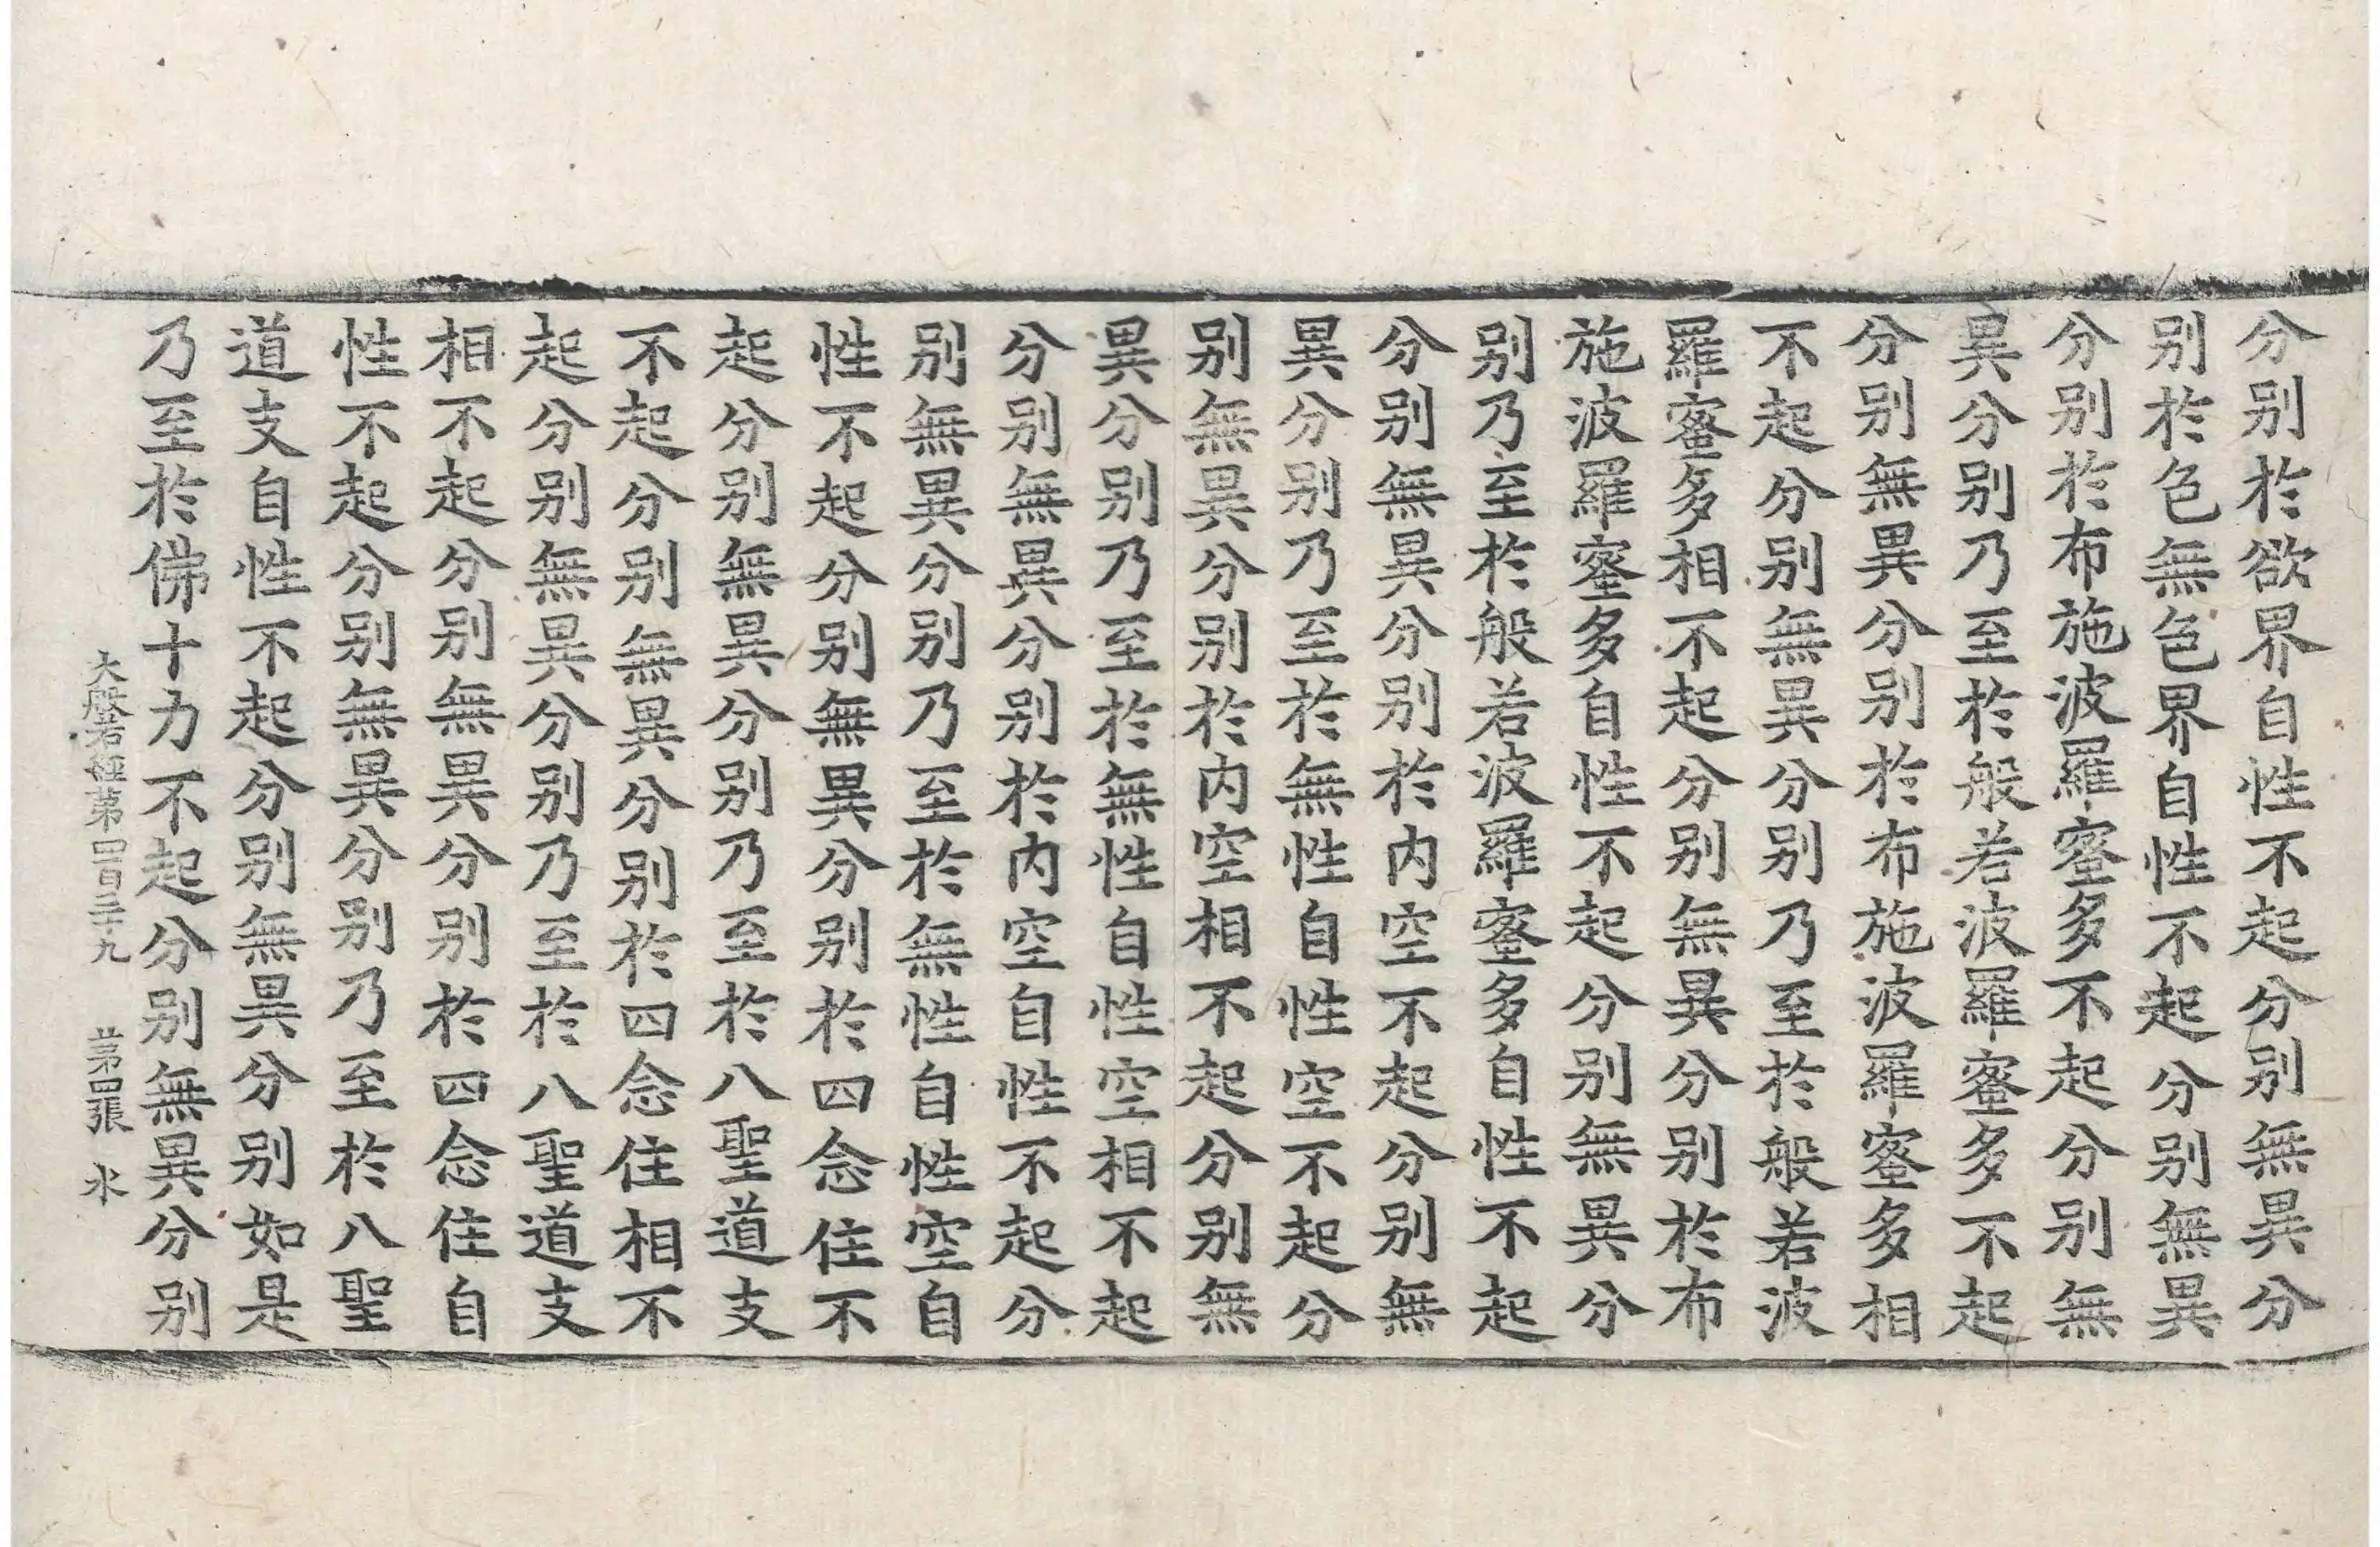 分別於欲界自性不起分別無異分
別於色無色界自性不起分別無異
分別於布施波羅蜜多不起分別無
異分別乃至於般若波羅蜜多不起
分別無異分別於布施波羅蜜多相
不起分別無異分別乃至於般若波
羅蜜多相不起分別無異分別於布
施波羅蜜多自性不起分別無異分
別乃至於般若波羅蜜多自性不起
分別無異分別於内空不起分別無
異分別乃至於無性自性空不起分
別無異分別於内空相不起分別無
異分別乃至於無性自性空相不起
分別無異分別於内空自性不起分
別無異分別乃至於無性自性空自
性不起分別無異分別於四念住不
起分別無異分別乃至於八聖道支
不起分別無異分別於四念住相不
起分別無異分別乃至於八聖道支
相不起分別無異分別於四念住自
性不起分別無異分別乃至於八聖
道支自性不起分別無異分別如是
乃至於佛十力不起分別無異分別
大般若經第四百三十九 第四張 水